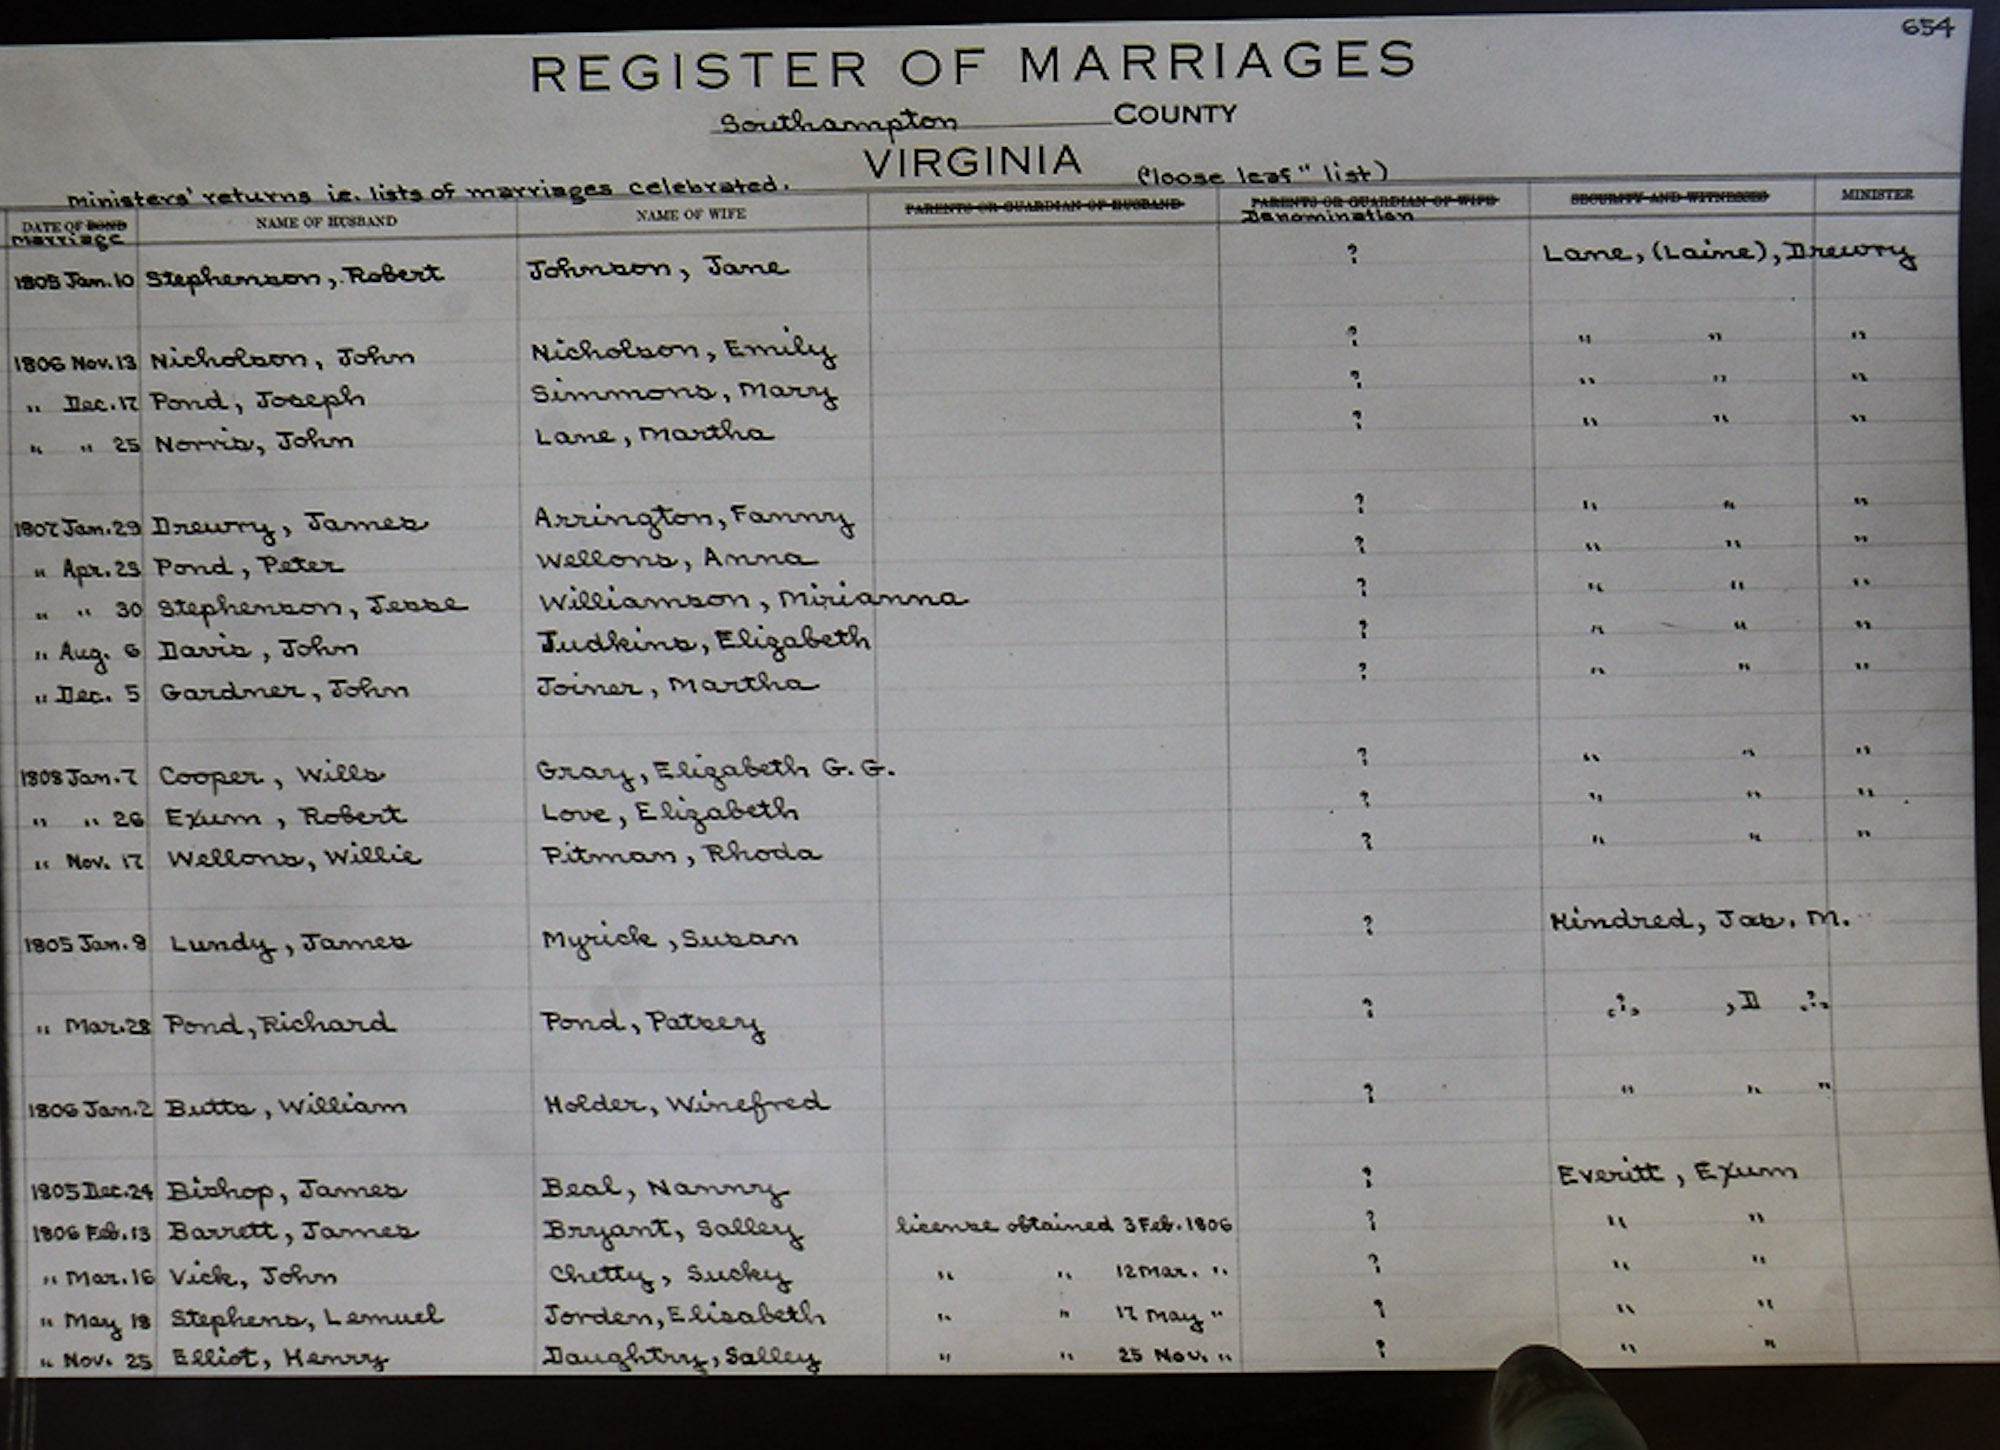 654
REGISTER OF MARRIAGES
Southampton COUNTY
VIRGINIA
Ministers' returns i.e. lists of marriages celebrated. ("loose leaf" list)
DATE OF BOND NAME OF HUSBAND NAME OF WIFE PARENTS OR GUARDIAN OF HUSBAND PARENTS OR GUARDIAN OF WIFE SECURITY AND WITNESSES MINISTER
Marriage Denomination
1805 Jan. 10 Stephenson, Robert Johnson, Jane ? Lane, (Laine), Drewry
1806 Nov. 13 Nicholson, John Nicholson, Emily ? " " "
" Dec. 17 Pond, Joseph Simmons, Mary ? " " "
" " 25 Norris, John Lane, Martha ? " " "
1807 Jan. 29 Drewry, James Arrington, Fanny ? " " "
" Apr. 23 Pond, Peter Wellons, Anna ? " " "
" " 30 Stephenson, Jesse Williamson, Mirianna ? " " "
" Aug. 6 Davis, John Judkins, Elizabeth ? " " "
" Dec. 5 Gardner, John Joiner, Martha ? " " "
1808 Jan. 7 Cooper, Wills Gray, Elizabeth G. G. ? " " "
" " 26 Exum, Robert Love, Elizabeth ? " " "
" Nov. 17 Wellons, Willie Pitman, Rhoda ? " " "
1805 Jan. 8 Lundy, James Myrick, Susan ? Hindred, Jas. M.
" Mar. 28 Pond, Richard Pond, Patsey ? (?) , D (?)
1806 Jan. 2 Butts, William Holder, Winefred ? " " "
1805 Dec. 24 Bishop, James Beal, Nanny ? Everitt, Exum
1806 Feb. 13 Barrett, James Bryant, Salley license obtained 3 Feb. 1806 ? " "
" Mar. 16 Vick, John Chetty, Sucky " " 12 Mar. " ? " "
" May 18 Stephens, Lemuel Jorden, Elisabeth " " 17 May " ? " "
" Nov. 25 Elliot, Henry Daughtry, Salley " " 25 Nov. " ? " "